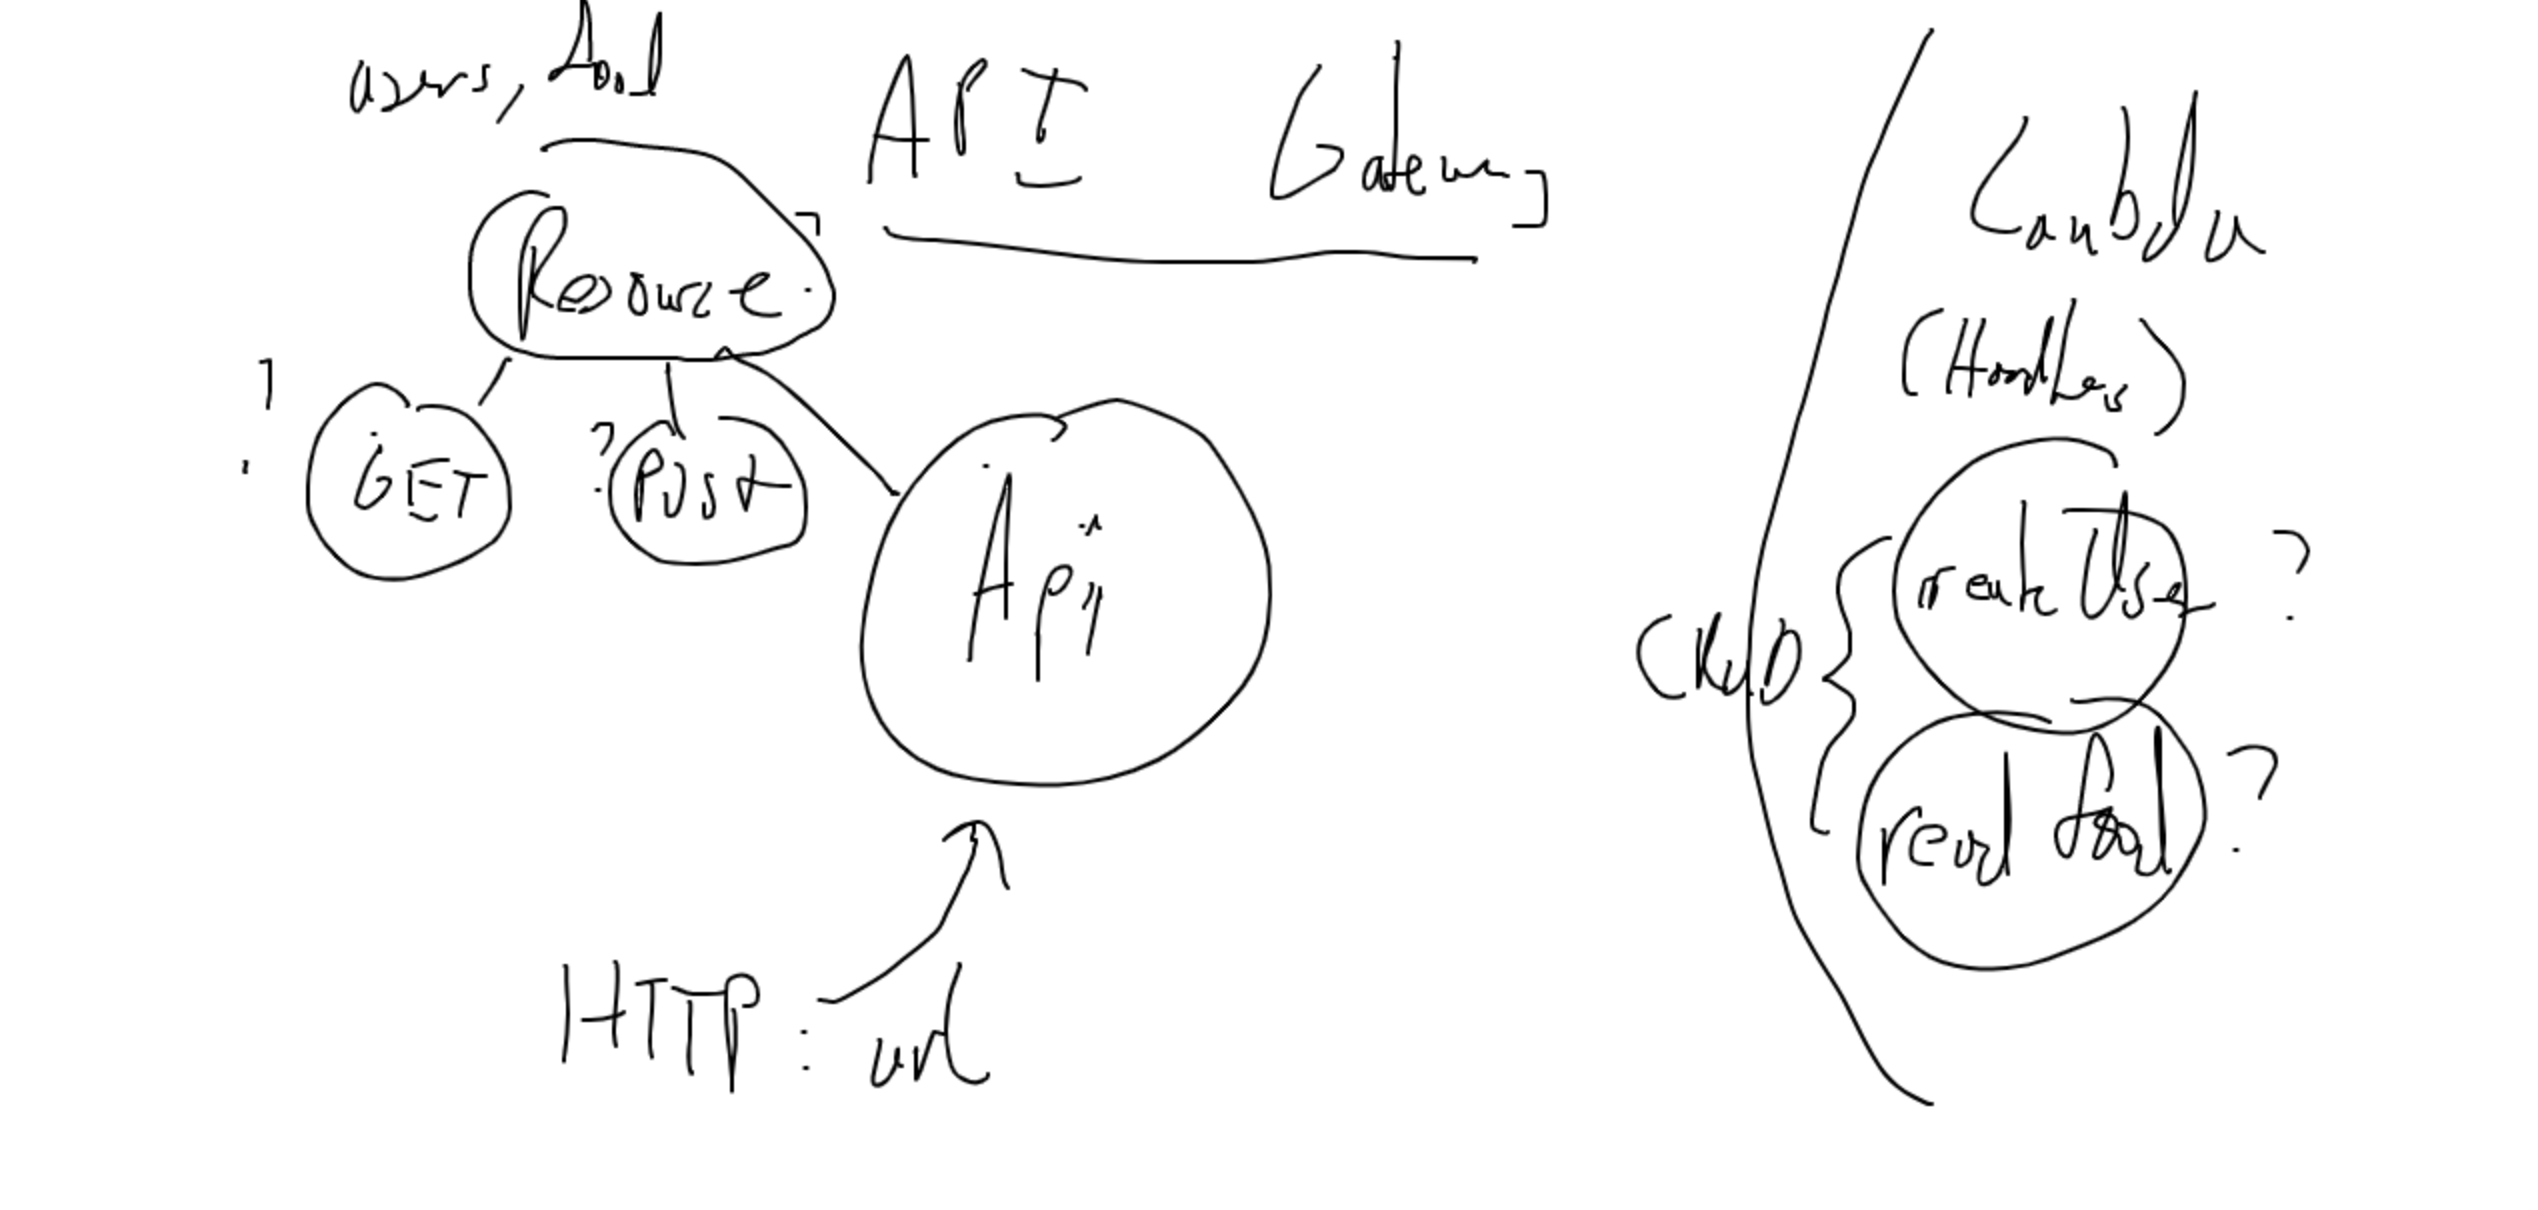 users, food
API Gateway
Resource
?
GET
?
POST
?
Api
HTTP: url
Lambda
(Handlers)
CRUD
create User ?
read food ?